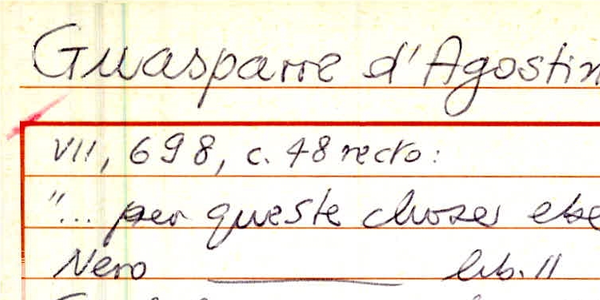 Guasparre d'Agostin
VII, 698, c. 48 recto:
"... per queste choses ebe
Nero lib. II